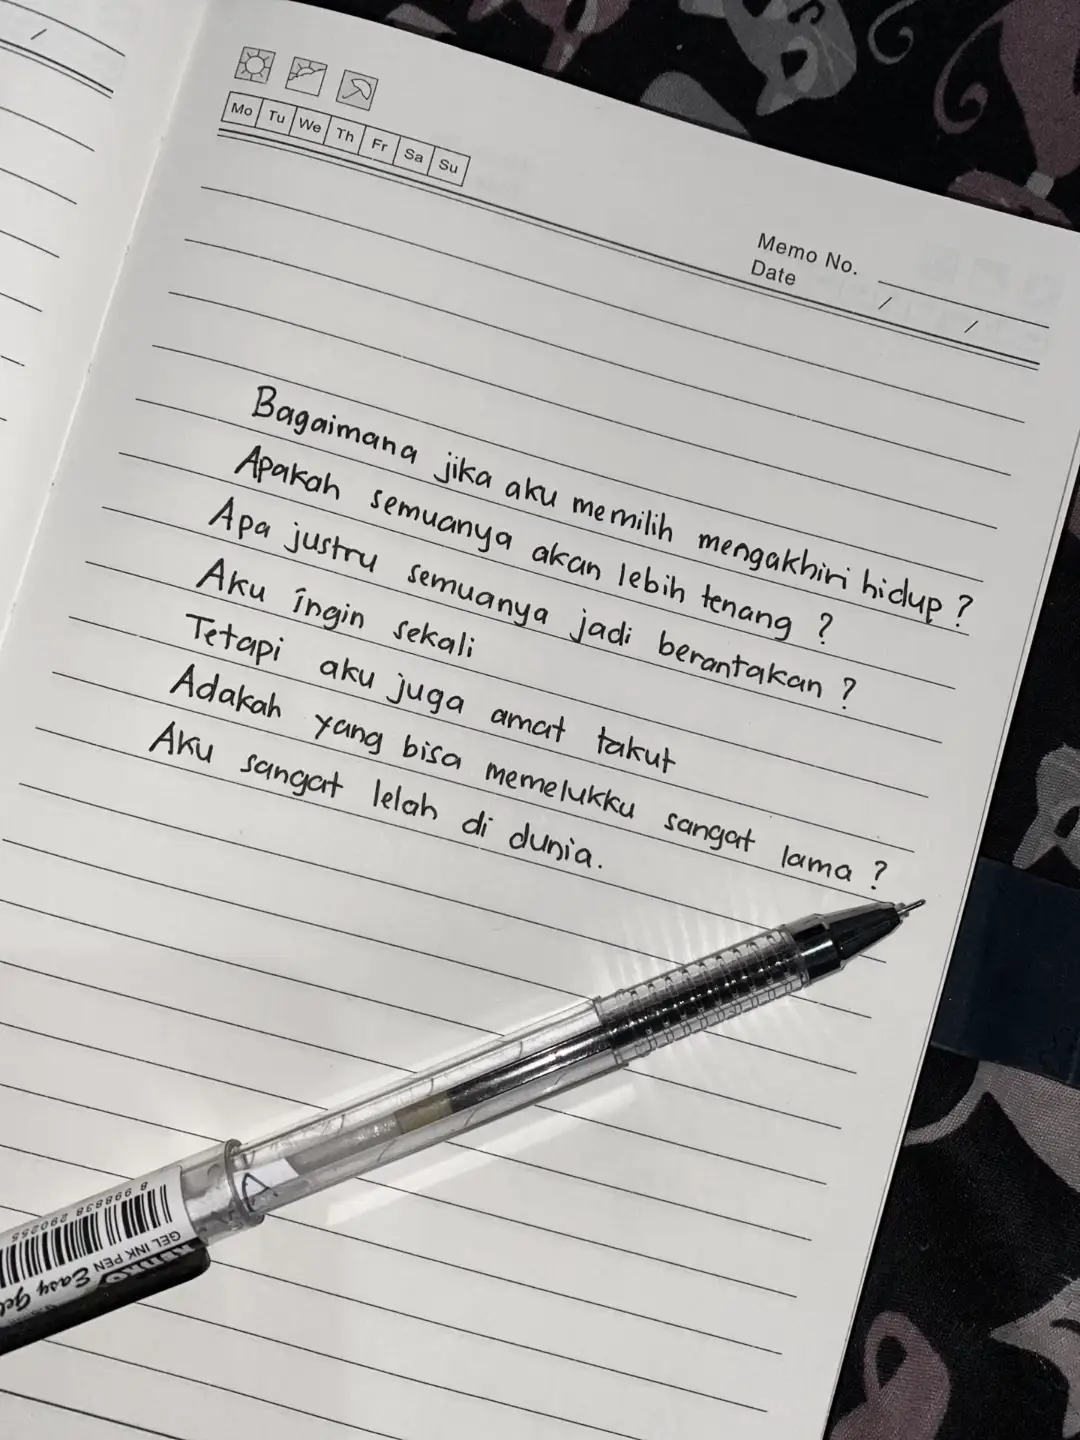 Mo Tu We Th Fr Sa Su
Memo No.
Date / /
Bagaimana jika aku memilih mengakhiri hidup ?
Apakah semuanya akan lebih tenang ?
Apa justru semuanya jadi berantakan ?
Aku ingin sekali
Tetapi aku juga amat takut
Adakah yang bisa memelukku sangat lama ?
Aku sangat lelah di dunia.
8 998838 290255
GEL INK PEN
KENKO Easy Gel